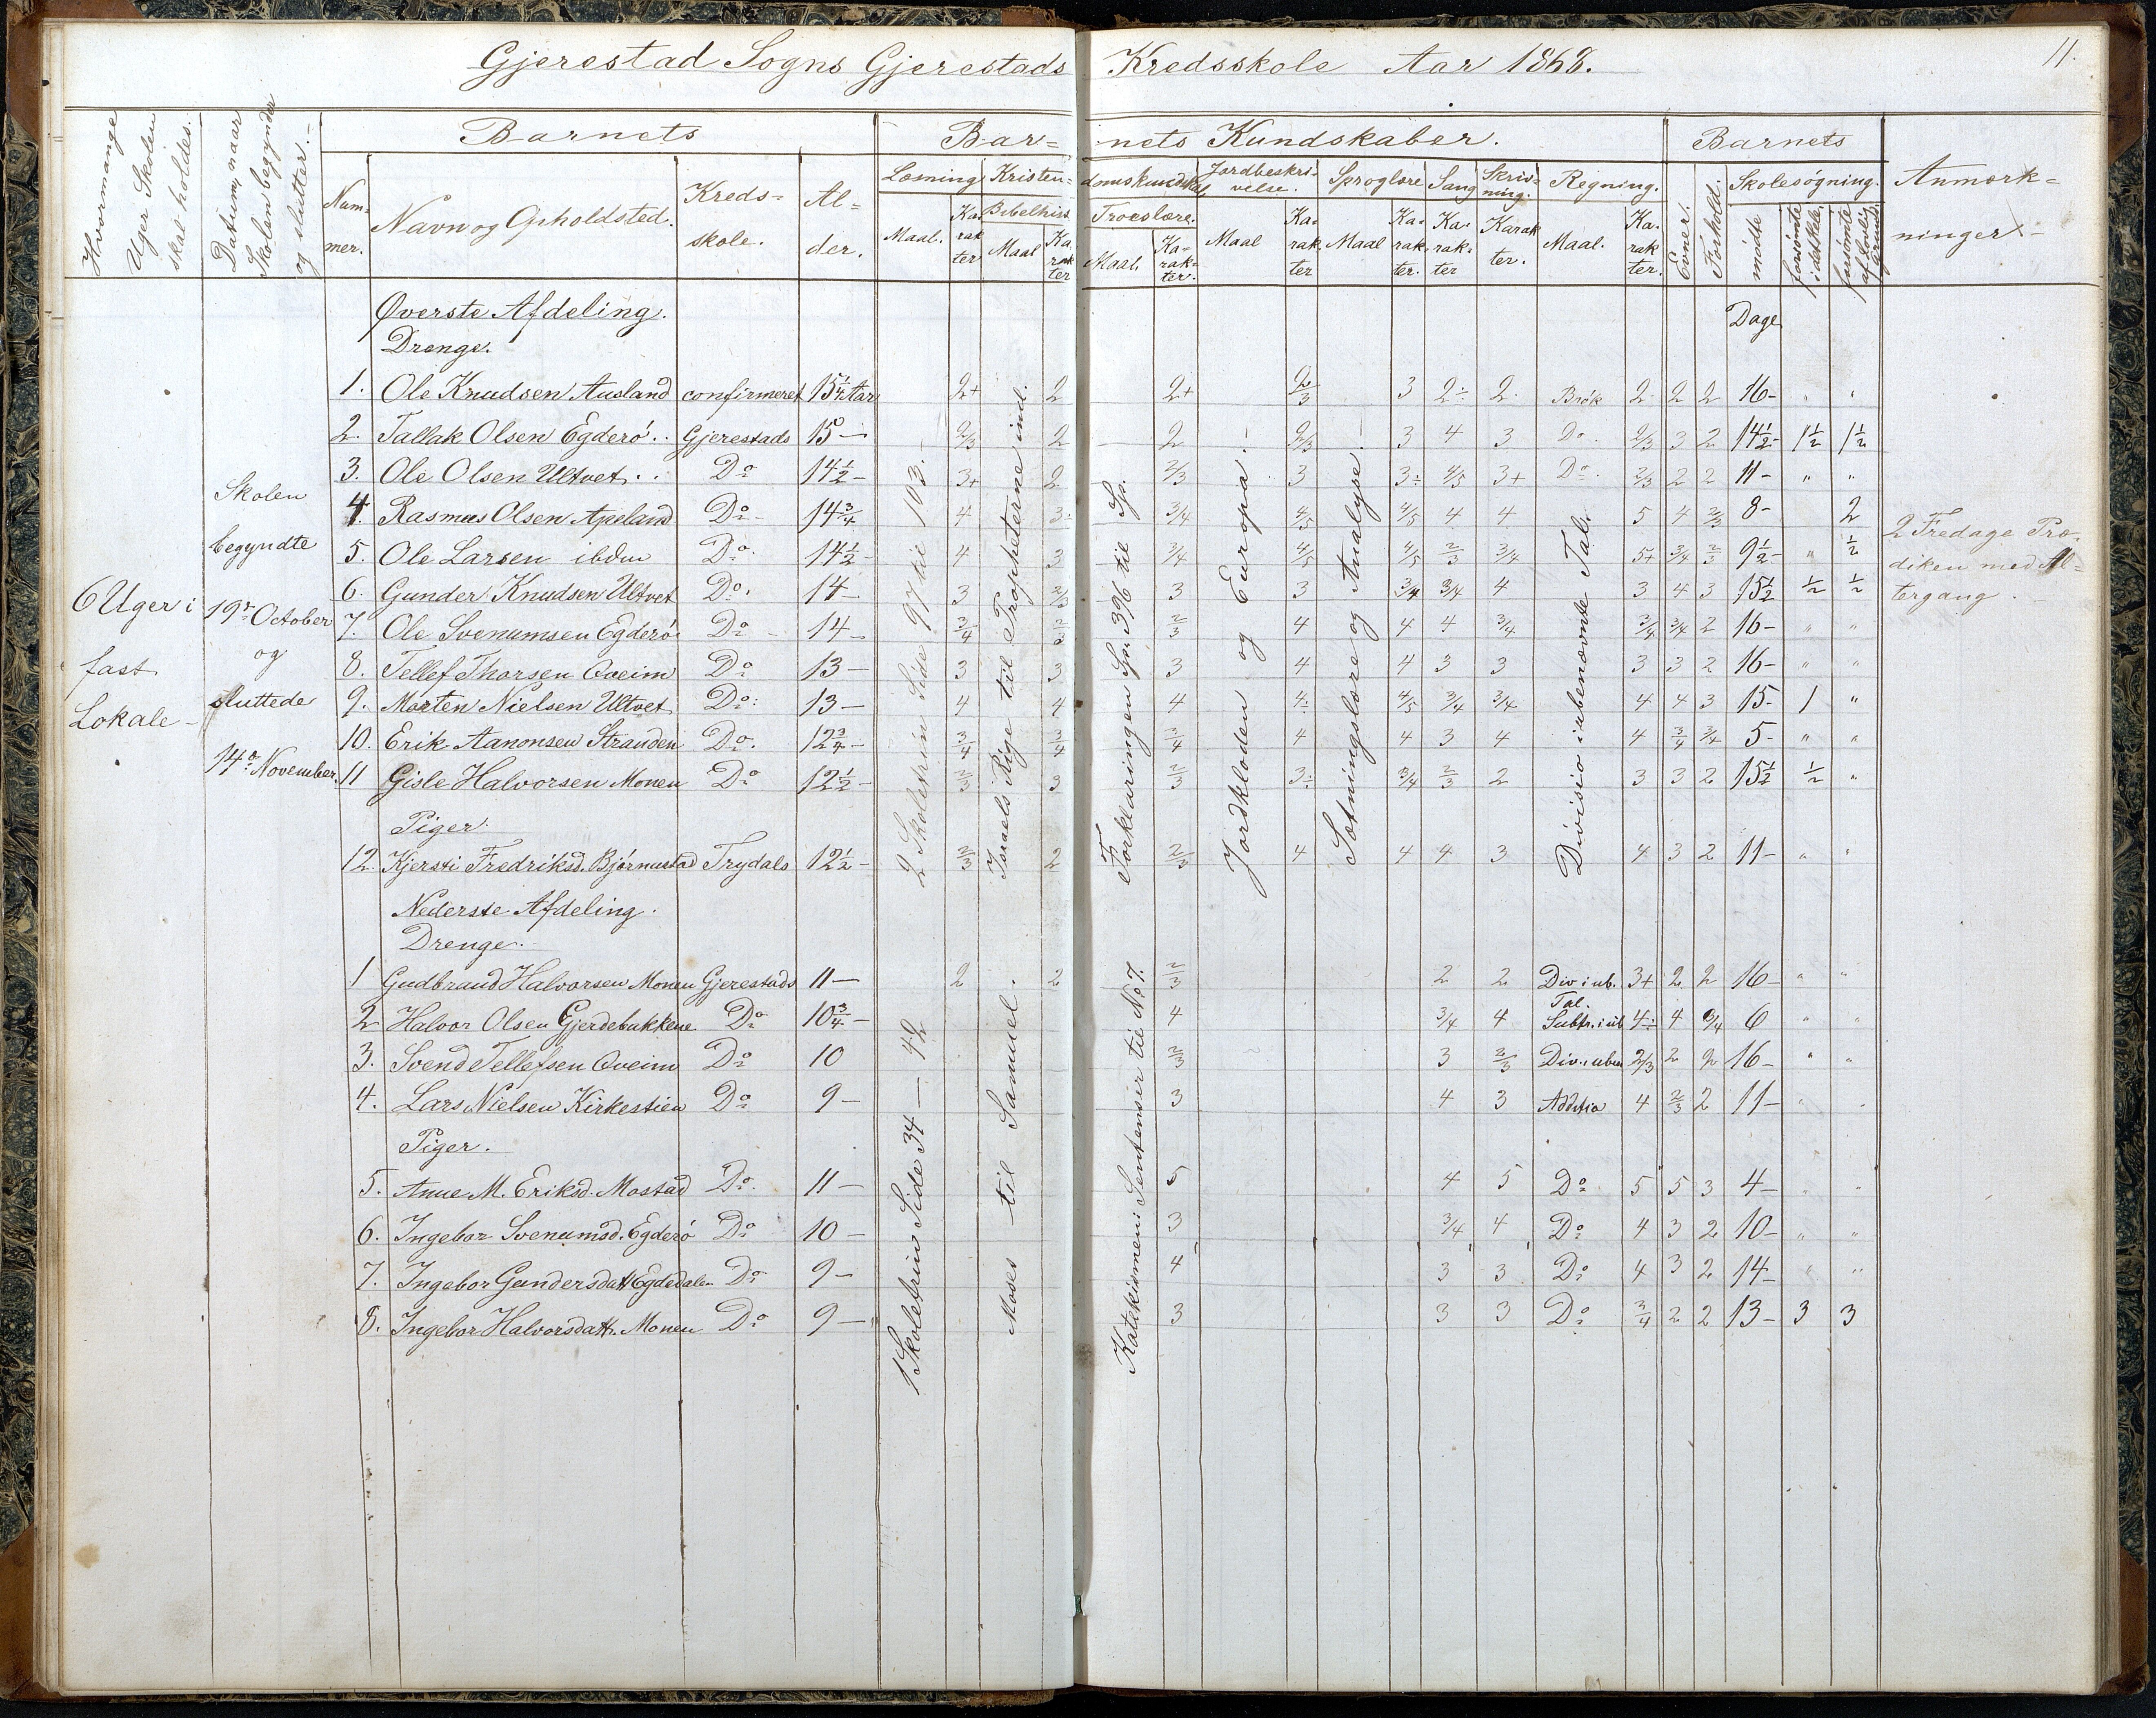 Gjerestad Sogns Gjerestads Kredsskole Aar 1868.
11.
Hvormange Uger Skolen skal holdes.
Datum, naar Skolen begynder og slutter.
Barnets
Bar=
nets Kundskaber.
Barnets
Anmærk=
ninger
Num=
mer.
Navn og Opholdsted.
Kreds=
skole.
Al=
der.
Læsning
Kristen=
domskundskab
Jordbeskri=
velse.
Sproglære
Sang
Skriv=
ning.
Regning.
Evner.
Forhold.
Skolesøgning.
Maal.
Ka=
rak
ter
Bibelhist.
Maal
Ka
rak
ter
Troeslære.
Maal.
Ka=
rak=
ter.
Maal
Ka=
rak
ter
Maal
Ka=
rak=
ter.
Ka=
rak=
ter
Karak
ter.
Maal.
Ka=
rak
ter.
mødte
forsømte i det hele.
forsømte af lovlig Grund.
6 Uger i
fast
Lokale
Skolen
begyndte
19de October
og
sluttede
14de November.
Øverste Afdeling.
Dage
Drenge.
1. Ole Knudsen Ausland confirmeret 15¼ Aar 2+ 2 2+ 2/3 3 2÷ 2 Brøk 2 2 2 16- " "
2. Tallak Olsen Egderø.. Gjerestads 15 – 2/3 2 2 2/3 3 4 3 Do. 2/3 3 2 14½- 1½ 1½
3. Ole Olsen Ultvet.. Do 14½ – 3+ 2 2/3 3 3÷ 4/5 3+ Do. 2/3 2 2 11- " "
4. Rasmus Olsen Apeland Do 14¾ 4 3÷ 3/4 4/5 4/5 4 4 5 4 2/3 8- 2
5. Ole Larsen ibdm Do. 14½ – 4 3 3/4 4/5 4/5 2/3 3/4 5+ 3/4 2/3 9½- " ½
6. Gunder Knudsen Ultvet Do. 14 – 3 2/3 3 3 3/4 3/4 4 3 4 3 15½ ½ ½
7. Ole Svenumsen Egderø Do 14 – 3/4 2/3 2/3 4 4 4 3/4 3/4 3/4 2 16- " "
8. Tellef Thorsen Qveim Do 13 – 3 3 3 4 4 3 3 3 3 2 16- " "
9. Morten Nielsen Ultvet Do. 13 – 4 4 4 4÷ 4/5 3/4 3/4 4 4 3 15- 1 "
10. Erik Aanonsen Stranden Do. 12¾ – 3/4 3/4 3/4 4 4 3 4 4 3/4 3/4 5- " "
11 Gisle Halvorsen Monen Do 12½ – 2/3 3 2/3 3÷ 3/4 2/3 2 3 3 2 15½ ½ "
Piger.
12. Kjersti Fredriksd. Bjørnustad Trydals 12½ – 2/3 2 2/3 4 4 4 3 4 3 2 11- " "
2 Skoletrin Side 97 til 103.
Israels Rige til Propheterne ind.
Forklaringen Sp. 396 til Sp.
Jordkloden og Europa.
Sætningslære og Analyse
Divisio i ubenævnte Tal.
2 Fredage Præ=
diken med Al=
tergang.
Nederste Afdeling.
Drenge.
1 Gudbrand Halvorsen Monen Gjerestads 11 – 2 2 2/3 2 2 Div i ub. Tal. 3+ 2 2 16- " "
2 Halvor Olsen Gjerdebakkene. Do 10¾ – 4 3/4 4 Subtr. i ub 4÷ 4 3/4 6 " "
3. Svend Tellefsen Qveim Do 10 2/3 3 2/3 Div. i uben 2/3 2 2 16- " "
4. Lars Nielsen Kirkestien Do 9 – 3 4 3 Additio 4 2/3 2 11- "
Piger.
5. Anne M. Eriksd. Mostad Do. 11 – 5 4 5 Do 5 5 3 4- " "
6. Ingebor Svenumsd. Egderø Do 10 – 3 3/4 4 Do 4 3 2 10- " "
7. Ingebor Gundersdatt Egdedalen Do 9 – 4 3 3 Do 4 3 2 14- " "
8. Ingebor Halvorsdatt. Monen Do 9 – 3 3 3 Do 3/4 2 2 13- 3 3
1 Skoletrin Side 34 – 42
Moses til Samuel.
Katekismen i Sentenser til No 7.